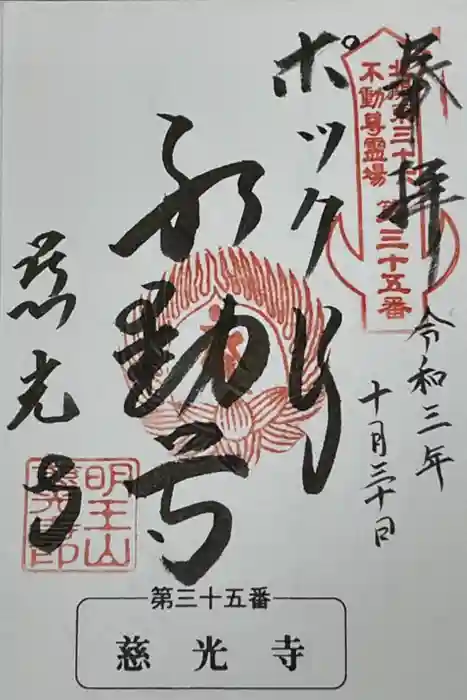 奉拝
令和三年
十月三十日
北関東三十六
不動尊霊場
第三十五番
ポックリ
不動尊
慈光寺
明王山
第三十五番
慈光寺